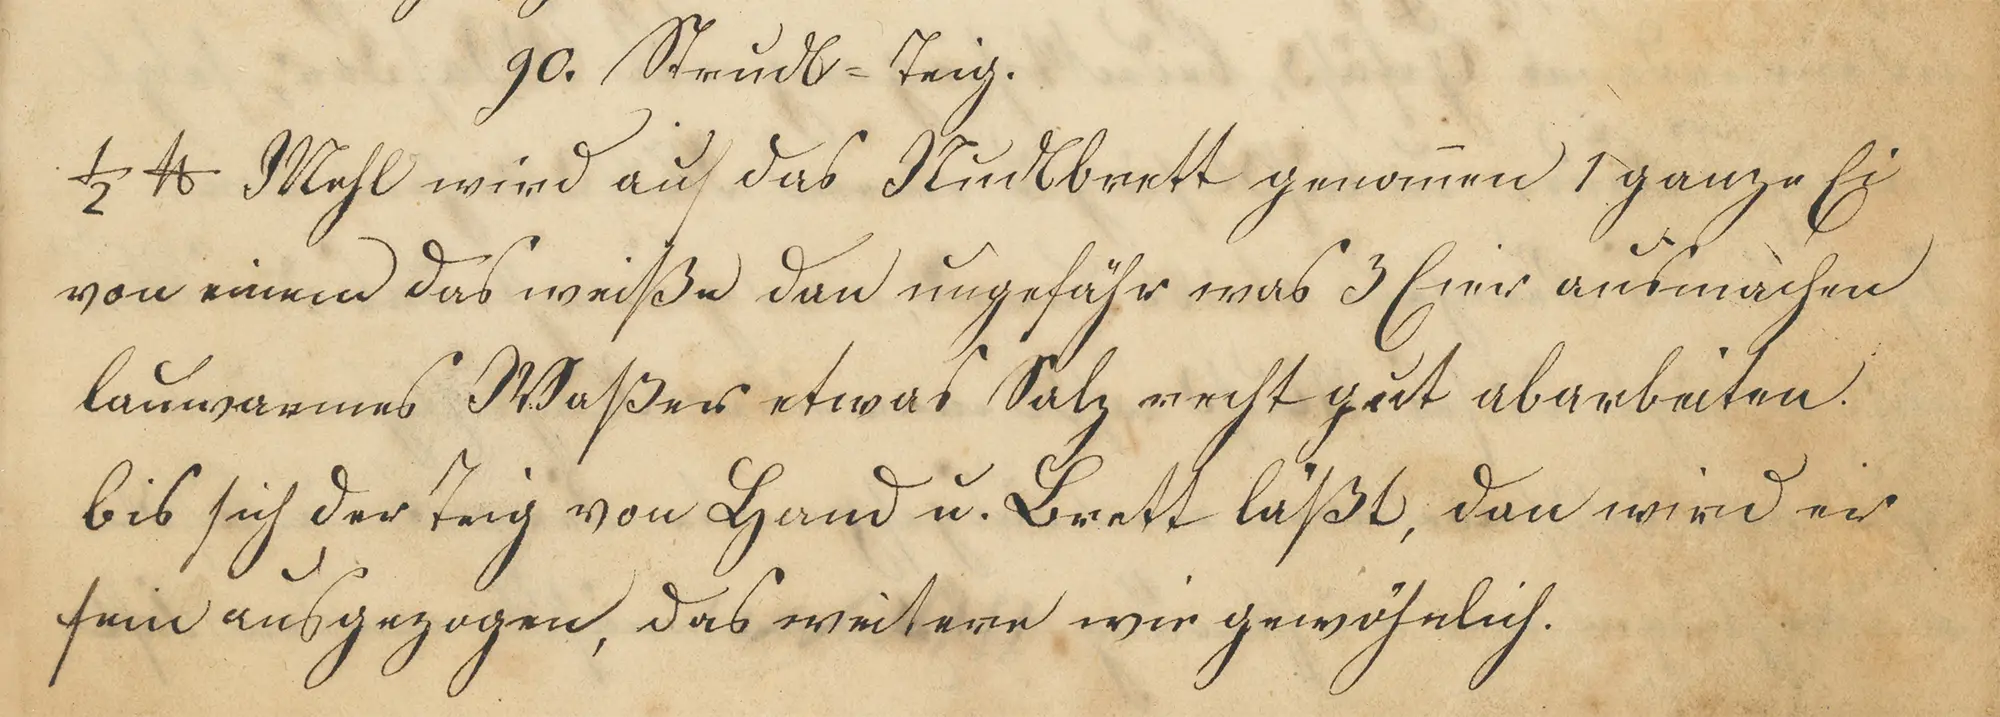 90. Strudl=Teig.
½ ℔ Mehl wird auf das Nudlbrett genom̄en 1 ganze Ei
von einem das weiße dan ungefähr was 3 Eier ausmachen
lauwarmes Waßer etwas Salz recht gut abarbeiten.
bis sich der Teig von Hand u. Brett läßt, dan wird er
fein ausgezogen, das weitere wie gewöhnlich.